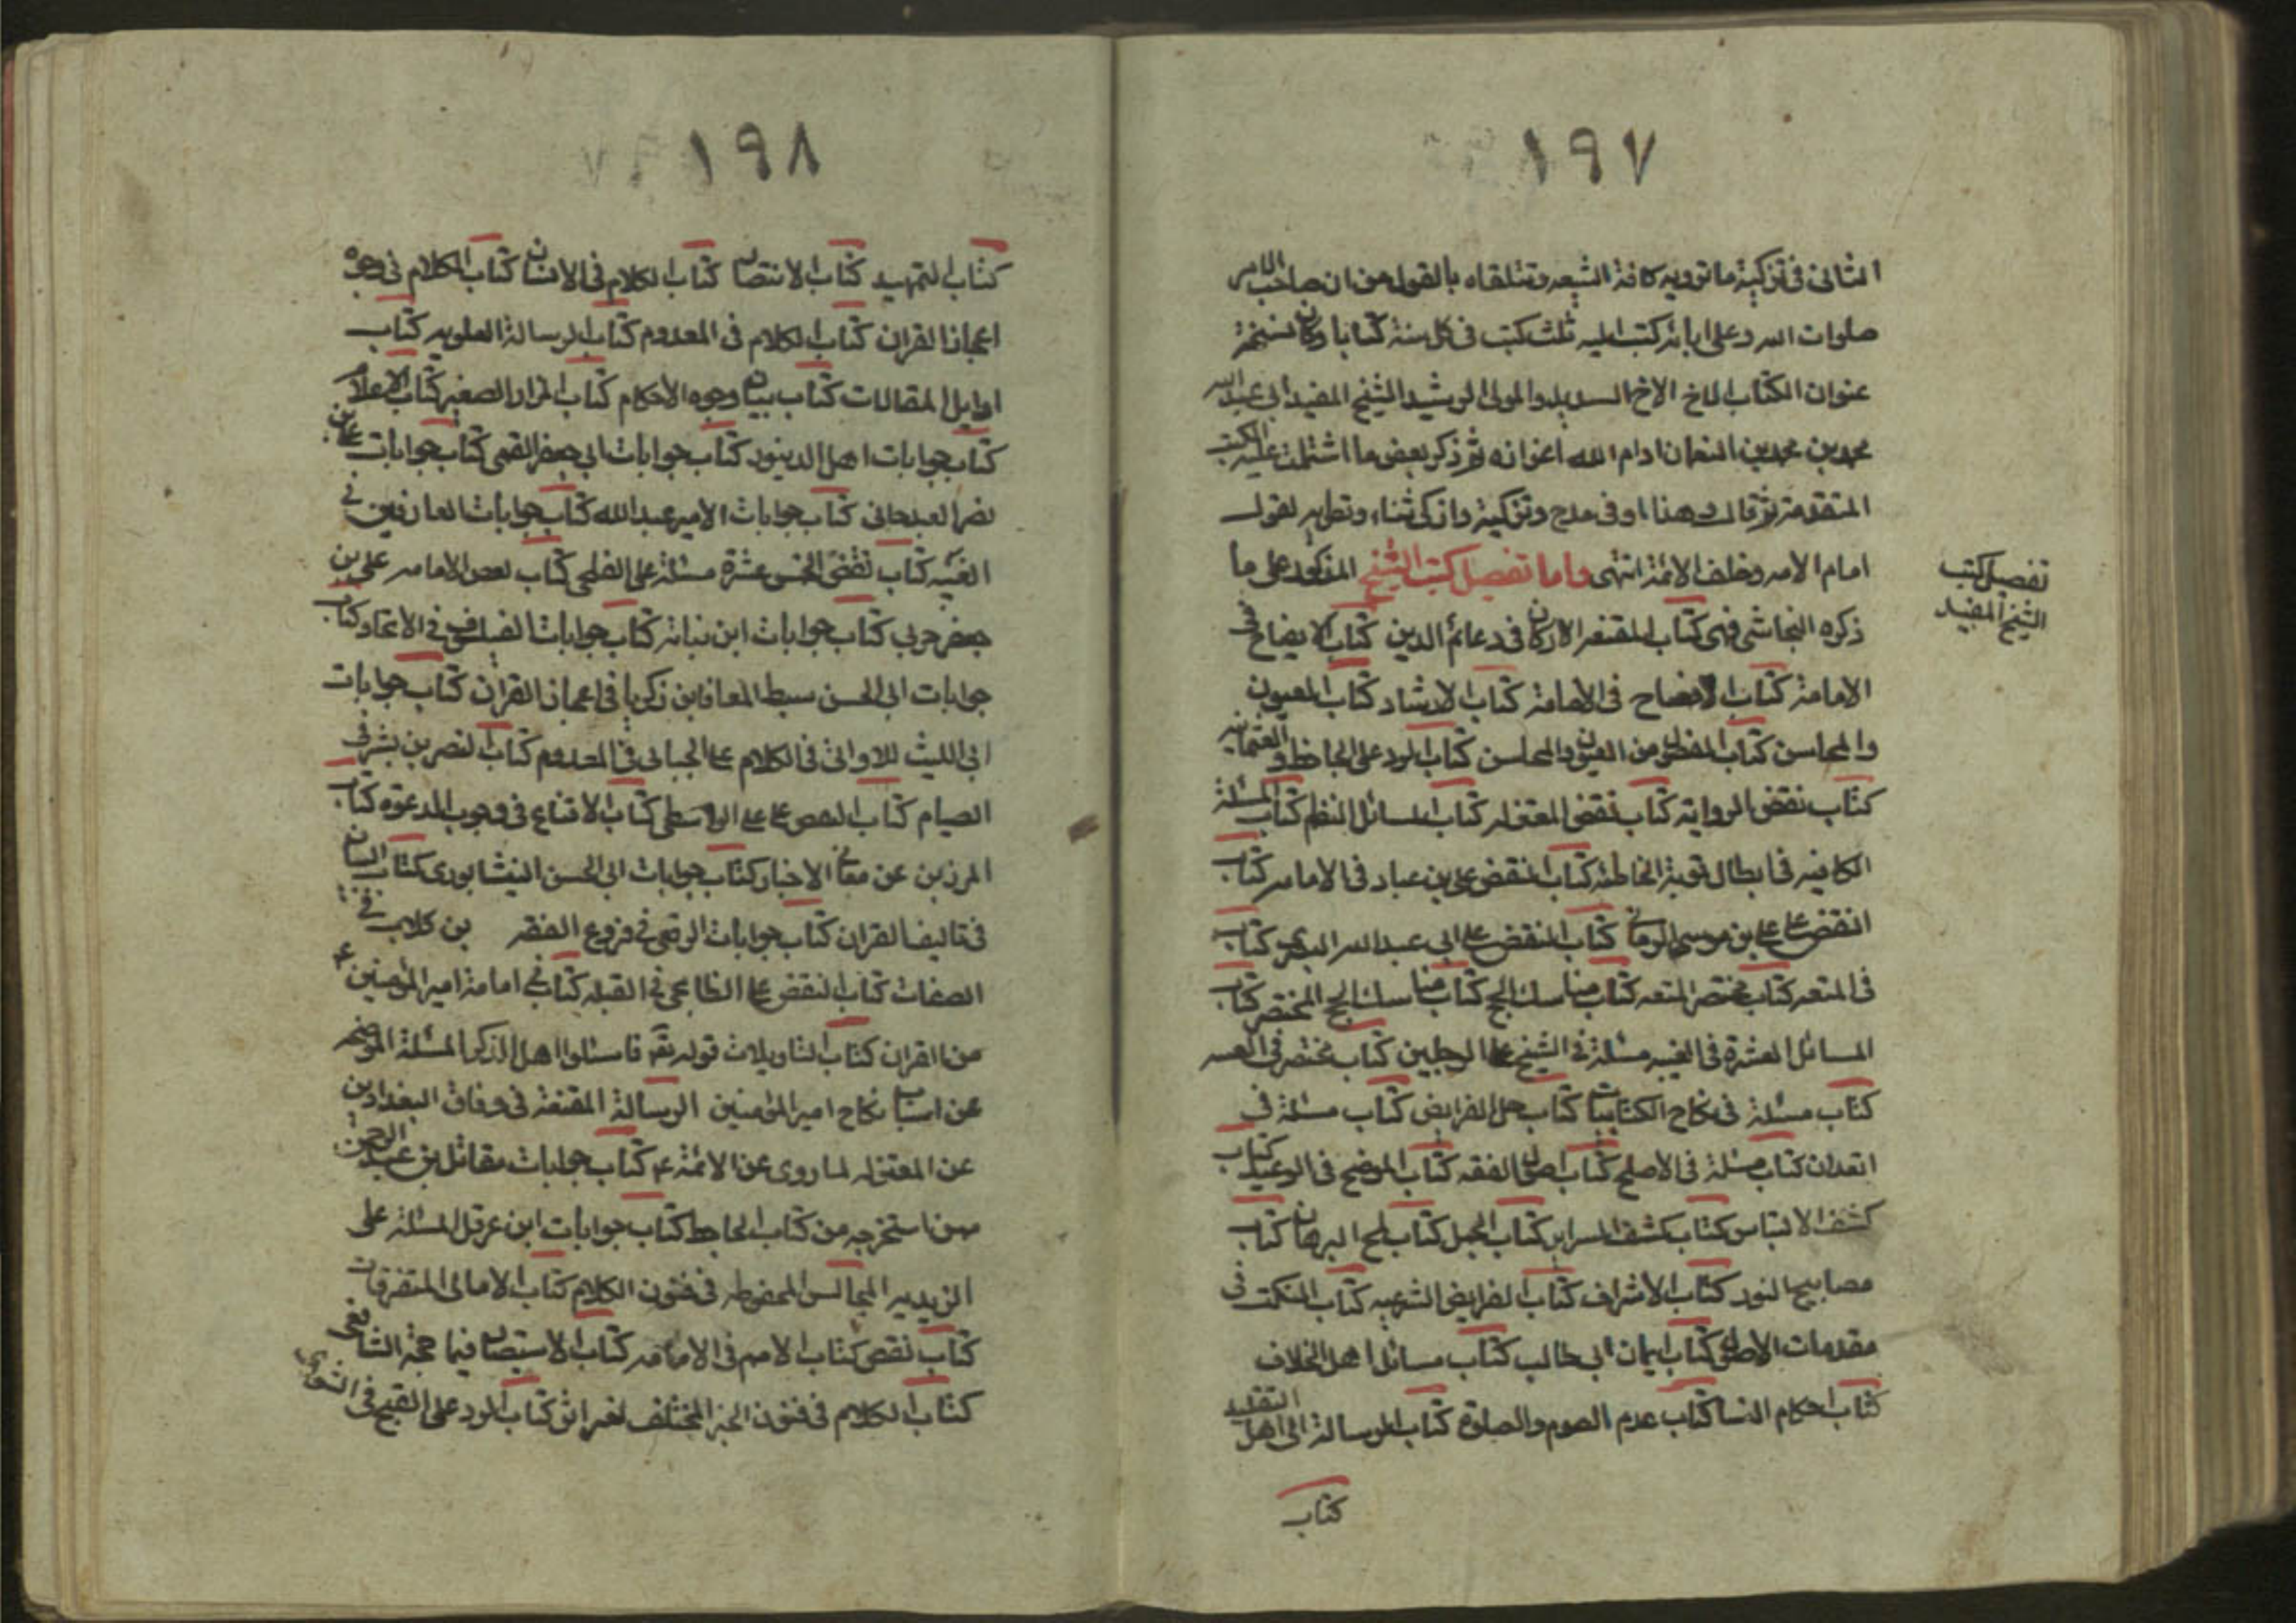 ١٩٧
الثانى فى تزكيته ما ترويه كافة الشيعه وتتلقاه بالقبول من ان صاحب الامر
صلوات الله وعلى ابائه كتب اليه ثلث كتب فى كل سنة كتابا وكان نسخة
عنوان الكتاب للاخ السديد والمولى الرشيد الشيخ المفيد ابى عبد الله
محمد بن محمد بن النعمان ادام الله اعزازه ثم ذكر بعض ما اشتملت عليه الكتب
المتقدمة ثم قال وهذا اوفى مدح وتزكية وازكى ثناء وتطهير لقول
امام الامه وخلف الائمة انتهى واما تفصيل كتب الشيخ المذكور على ما
تفصيل كتب
الشيخ المفيد
ذكره النجاشى فهى كتاب المقنعه الاركان فى دعائم الدين كتاب الايضاح فى
الامامة كتاب الافصاح فى الامامة كتاب الارشاد كتاب العيون
والمحاسن كتاب الفصول من العيون والمحاسن كتاب الرد على الجاحظ والعثمانيه
كتاب نقض المروانية كتاب نقض المعتزله كتاب المسائل النظم كتاب المسئلة
الكافيه فى ابطال توبة الخاطئه كتاب النقض على بن عباد فى الامامه كتاب
النقض على على بن عيسى الرمانى كتاب النقض على ابى عبد الله البصرى كتاب
فى المتعه كتاب مختصر المتعه كتاب مناسك الحج كتاب مناسك الحج المختصر كتاب
المسائل العشرة فى الغيبه مسئلة فى المسح على الرجلين كتاب مختصر فى الغيبه
كتاب مسئلة فى نكاح الكتابيات كتاب جمل الفرايض كتاب مسئلة فى
كتاب مسئلة فى الاصلح كتاب اصول الفقه كتاب الموضح فى الوعيد كتاب
كشف الالتباس كتاب كشف السراير كتاب الجمل كتاب لمح البرهان كتاب
مصابيح النور كتاب الاشراف كتاب الفرايض الشرعيه كتاب النكت فى
مقدمات الاصول كتاب ايمان ابى طالب كتاب مسائل اهل الخلاف
كتاب احكام النسا كتاب عدم الصوم والصلوة كتاب الرسالة الى اهل التقليد
كتاب
١٩٨
كتاب التمهيد كتاب الانتصار كتاب الكلام فى الانسان كتاب الكلام فى وجوه
اعجاز القران كتاب الكلام فى المعدوم كتاب الرسالة العلويه كتاب
اوايل المقالات كتاب بيان وجوه الاحكام كتاب المزار الصغير كتاب الاعلام
كتاب جوابات اهل الدينور كتاب جوابات ابى جعفر القمى كتاب جوابات على بن
نصر العبدجانى كتاب جوابات الامير عبد الله كتاب جوابات الفارقيين فى
الغيبه كتاب نقض الخمس عشرة مسئلة على البلخى كتاب نقض الامامه على بن
جعفر حربى كتاب جوابات ابن نباته كتاب جوابات الفيلسوف فى الاتحاد كتاب
جوابات ابى الحسن سبط المعافا بن زكريا فى اعجاز القران كتاب جوابات
ابى الليث الاوانى فى الكلام على الجبائى فى المعدوم كتاب النصر بن بشر فى
الصيام كتاب النقض على الواسطى كتاب الاقناع فى وجوب الدعوة كتاب
المزدين عن معانى الاخبار كتاب جوابات ابى الحسن النيشابورى كتاب البيان
فى تاليف القران كتاب جوابات البرقعى فى فروع الفقه بن كلاب فى
الصفات كتاب النقض على الطلحى فى القبله كتاب فى امامة امير المؤمنين ع
من القران كتاب التاويلات قوله تع فاسئلوا اهل الذكر المسئلة الموضحه
عن اسباب نكاح امير المؤمنين الرسالة المقنعة فى وفاق البغداديين
عن المعتزله لما روى عن الائمة ع كتاب جوابات مقاتل بن عبد الرحمن
عن استخرجه من كتاب الجاحظ كتاب جوابات ابن عرقل المسئلة على
الزيديه المجالس المحفوظه فى فنون الكلام كتاب الامالى المتفرقات
كتاب نقض كتاب الاصم فى الامامه كتاب الاستبصار فيما جمعه الشافعى
كتاب الكلام فى فنون الخبر المختلف لغير اثر كتاب الرد على القبح فى الشعرى